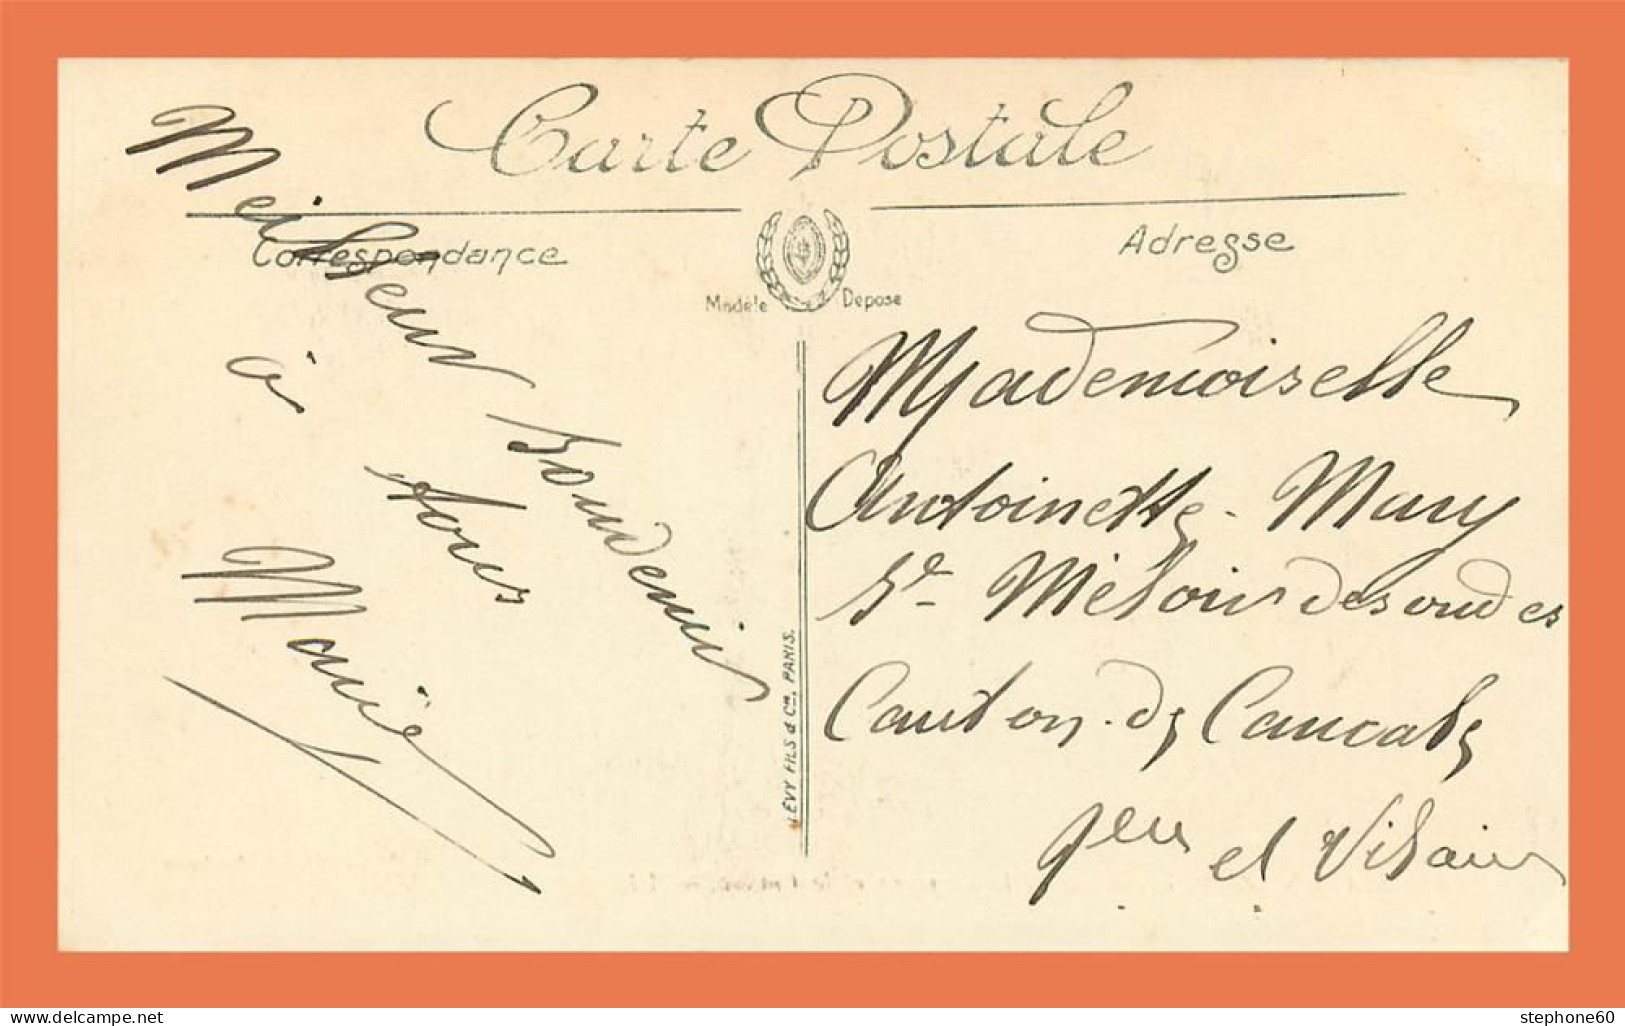 Carte Postale
Correspondance
Adresse
Modèle Deposé
LÉVY FILS & Cie, PARIS.
Meilleur Souvenir
à
tous
Marie
Mademoiselle
Antoinette Mary
St Méloir des ondes
Canton de Cancale
et Vilaine
stephone60